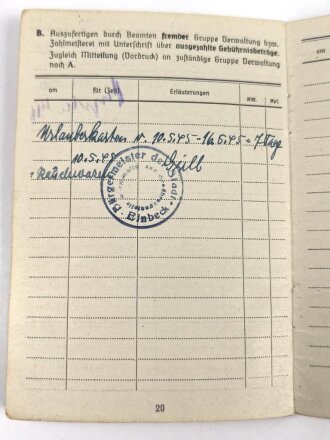 B. Auszufertigen durch Beamten fremder Gruppe Verwaltung bzw.
Zahlmeisterei mit Unterschrift über ausgezahlte Gebührnisbeträge.
Zugleich Mitteilung (Vordruck) an zuständige Gruppe Verwaltung
nach A.
am für (Zeit) Erläuterungen RM. Rpf.
Urlauberkarten v. 10.5.45-16.5.45 = 7 Tage
10.5.45
Bürgermeister der Stadt
Einbeck
20